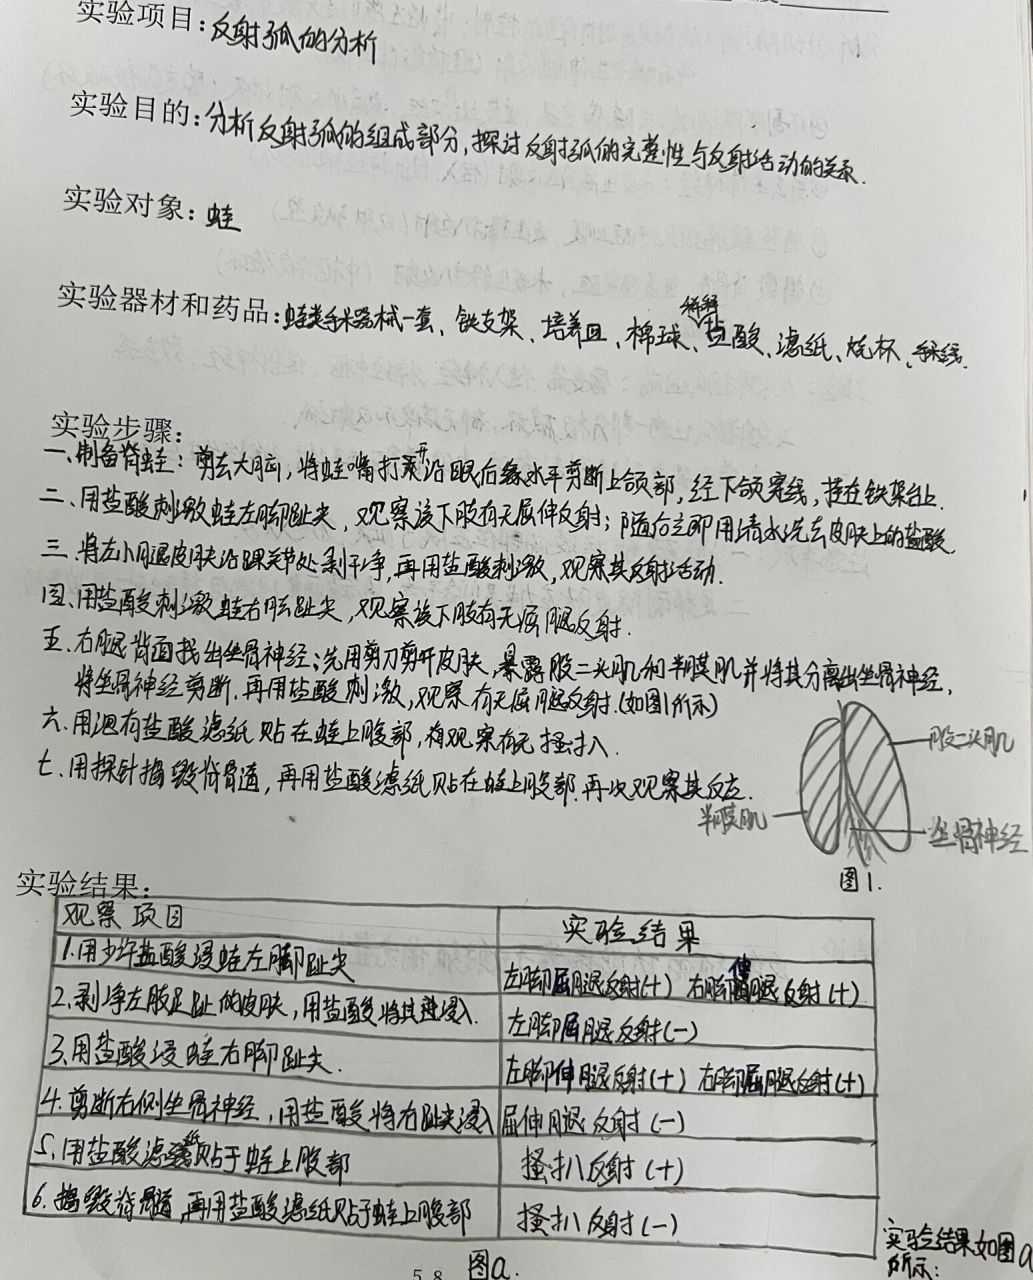 实验项目：反射弧的分析
实验目的：分析反射弧的组成部分，探讨反射弧的完整性与反射活动的关系.
实验对象：蛙
实验器材和药品：蛙类手术器械一套、铁支架、培养皿、棉球、稀释盐酸、滤纸、烧杯、手术线.
实验步骤：
一、制备脊蛙：剪去大脑，将蛙嘴打开沿眼后缘水平剪断上颌部，经下颌穿线，挂在铁架台上.
二、用盐酸刺激蛙左脚趾尖，观察该下肢有无屈伸反射；随后立即用清水洗去皮肤上的盐酸.
三、将左小腿皮肤沿踝关节处剥干净，再用盐酸刺激，观察其反射活动.
四、用盐酸刺激蛙右脚趾尖，观察该下肢有无屈腿反射.
五、右腿背面找出坐骨神经；先用剪刀剪开皮肤，暴露股二头肌和半膜肌并将其分离出坐骨神经，
将坐骨神经剪断，再用盐酸刺激，观察有无屈腿反射.(如图1所示)
六、用浸有盐酸滤纸贴在蛙上腹部，观察有无搔扒.
七、用探针捣毁脊骨道，再用盐酸滤纸贴在蛙上腹部.再次观察其反应.
股二头肌
半膜肌
坐骨神经
图1.
实验结果：
观察项目 实验结果
1.用少许盐酸浸蛙左脚趾尖 左脚屈腿反射(+) 右脚伸腿反射(+)
2.剥净左肢足趾的皮肤，用盐酸将其浸入. 左脚屈腿反射(-)
3.用盐酸浸蛙右脚趾尖. 左脚伸腿反射(+) 右脚屈腿反射(+)
4.剪断右侧坐骨神经，用盐酸将右趾尖浸入 屈伸腿反射(-)
5.用盐酸滤纸贴于蛙上腹部 搔扒反射(+)
6.捣毁脊髓，再用盐酸滤纸贴于蛙上腹部 搔扒反射(-)
实验结果如图a
所示：
58 图a.